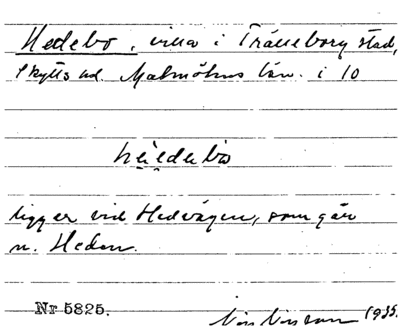 Hedebo, villa i Trälleborg stad,
Skytts hd. Malmöhus län. i 10
ligger vid Hedvägen, som går
n. Heden.
Nr 5825. 1935.